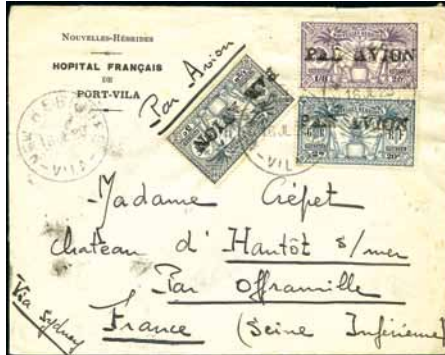 NOUVELLES-HÉBRIDES
HOPITAL FRANÇAIS
DE
PORT-VILA
Par Avion
PAR AVION
PAR AVION
PAR AVION
VILA
Madame Crépet
chateau d' Hautôt s/mer
Par Offranville
France (Seine Inférieure)
Via Sydney